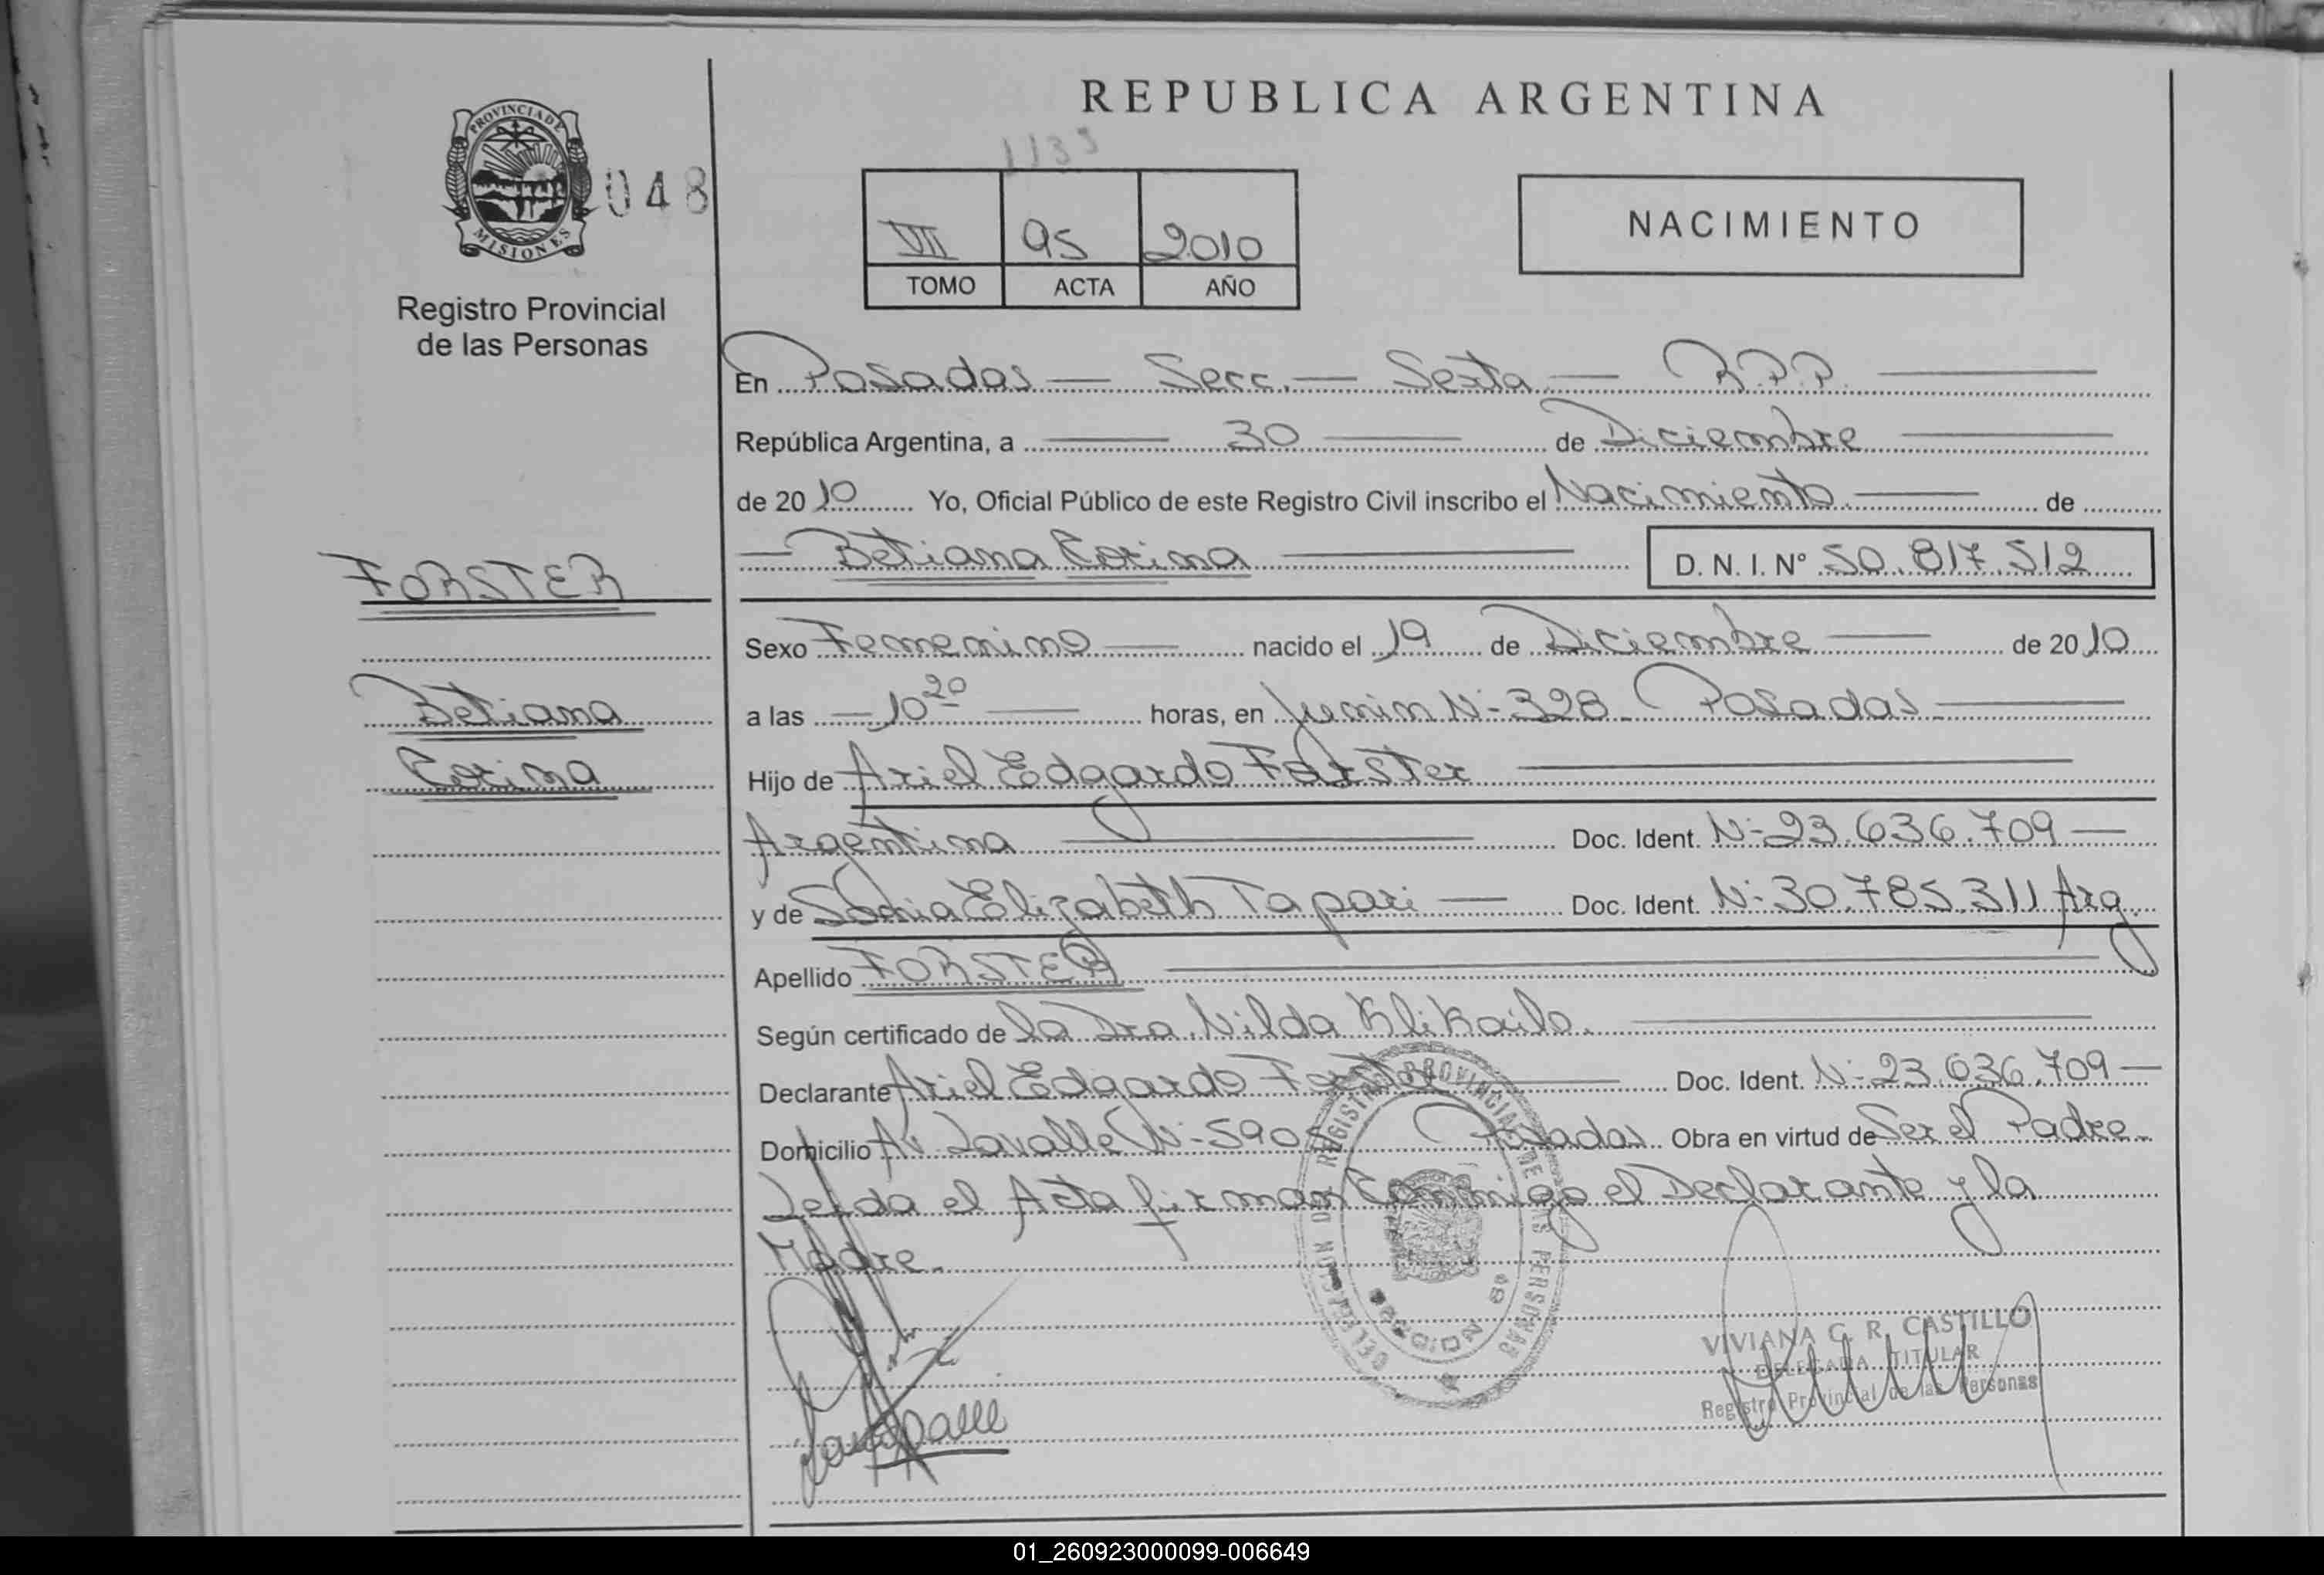 REPUBLICA ARGENTINA
1133
PROVINCIA DE
MISIONES
048
Registro Provincial
de las Personas
VII 95 2010
TOMO ACTA AÑO
NACIMIENTO
En Posadas — Secc. — Sexta — R.P.P.
República Argentina, a 30 de Diciembre
de 2010 Yo, Oficial Público de este Registro Civil inscribo el Nacimiento de
Betiana Corina D. N. I. Nº 50.817.512
FORSTER
Sexo Femenino nacido el 19 de Diciembre de 2010
Betiana
a las 10 20 horas, en Junin Nº 328 - Posadas
Corina
Hijo de Ariel Edgardo Forster
Argentina Doc. Ident. Nº 23.636.709
y de Sonia Elizabeth Tapari Doc. Ident. Nº 30.785.311 Arg.
Apellido FORSTER
Según certificado de la Dra. Nilda
Declarante Ariel Edgardo Forster Doc. Ident. Nº 23.636.709
Domicilio Av Lavalle Nº 590 Posadas Obra en virtud de Ser el Padre.
Leida el Acta firman Conmigo el Declarante y la
Madre.
DELEGACION DEL REGISTRO PROVINCIAL DE LAS PERSONAS
VIVIANA C. R. CASTILLO
DELEGADA TITULAR
Registro Provincial de las Personas
01_260923000099-006649